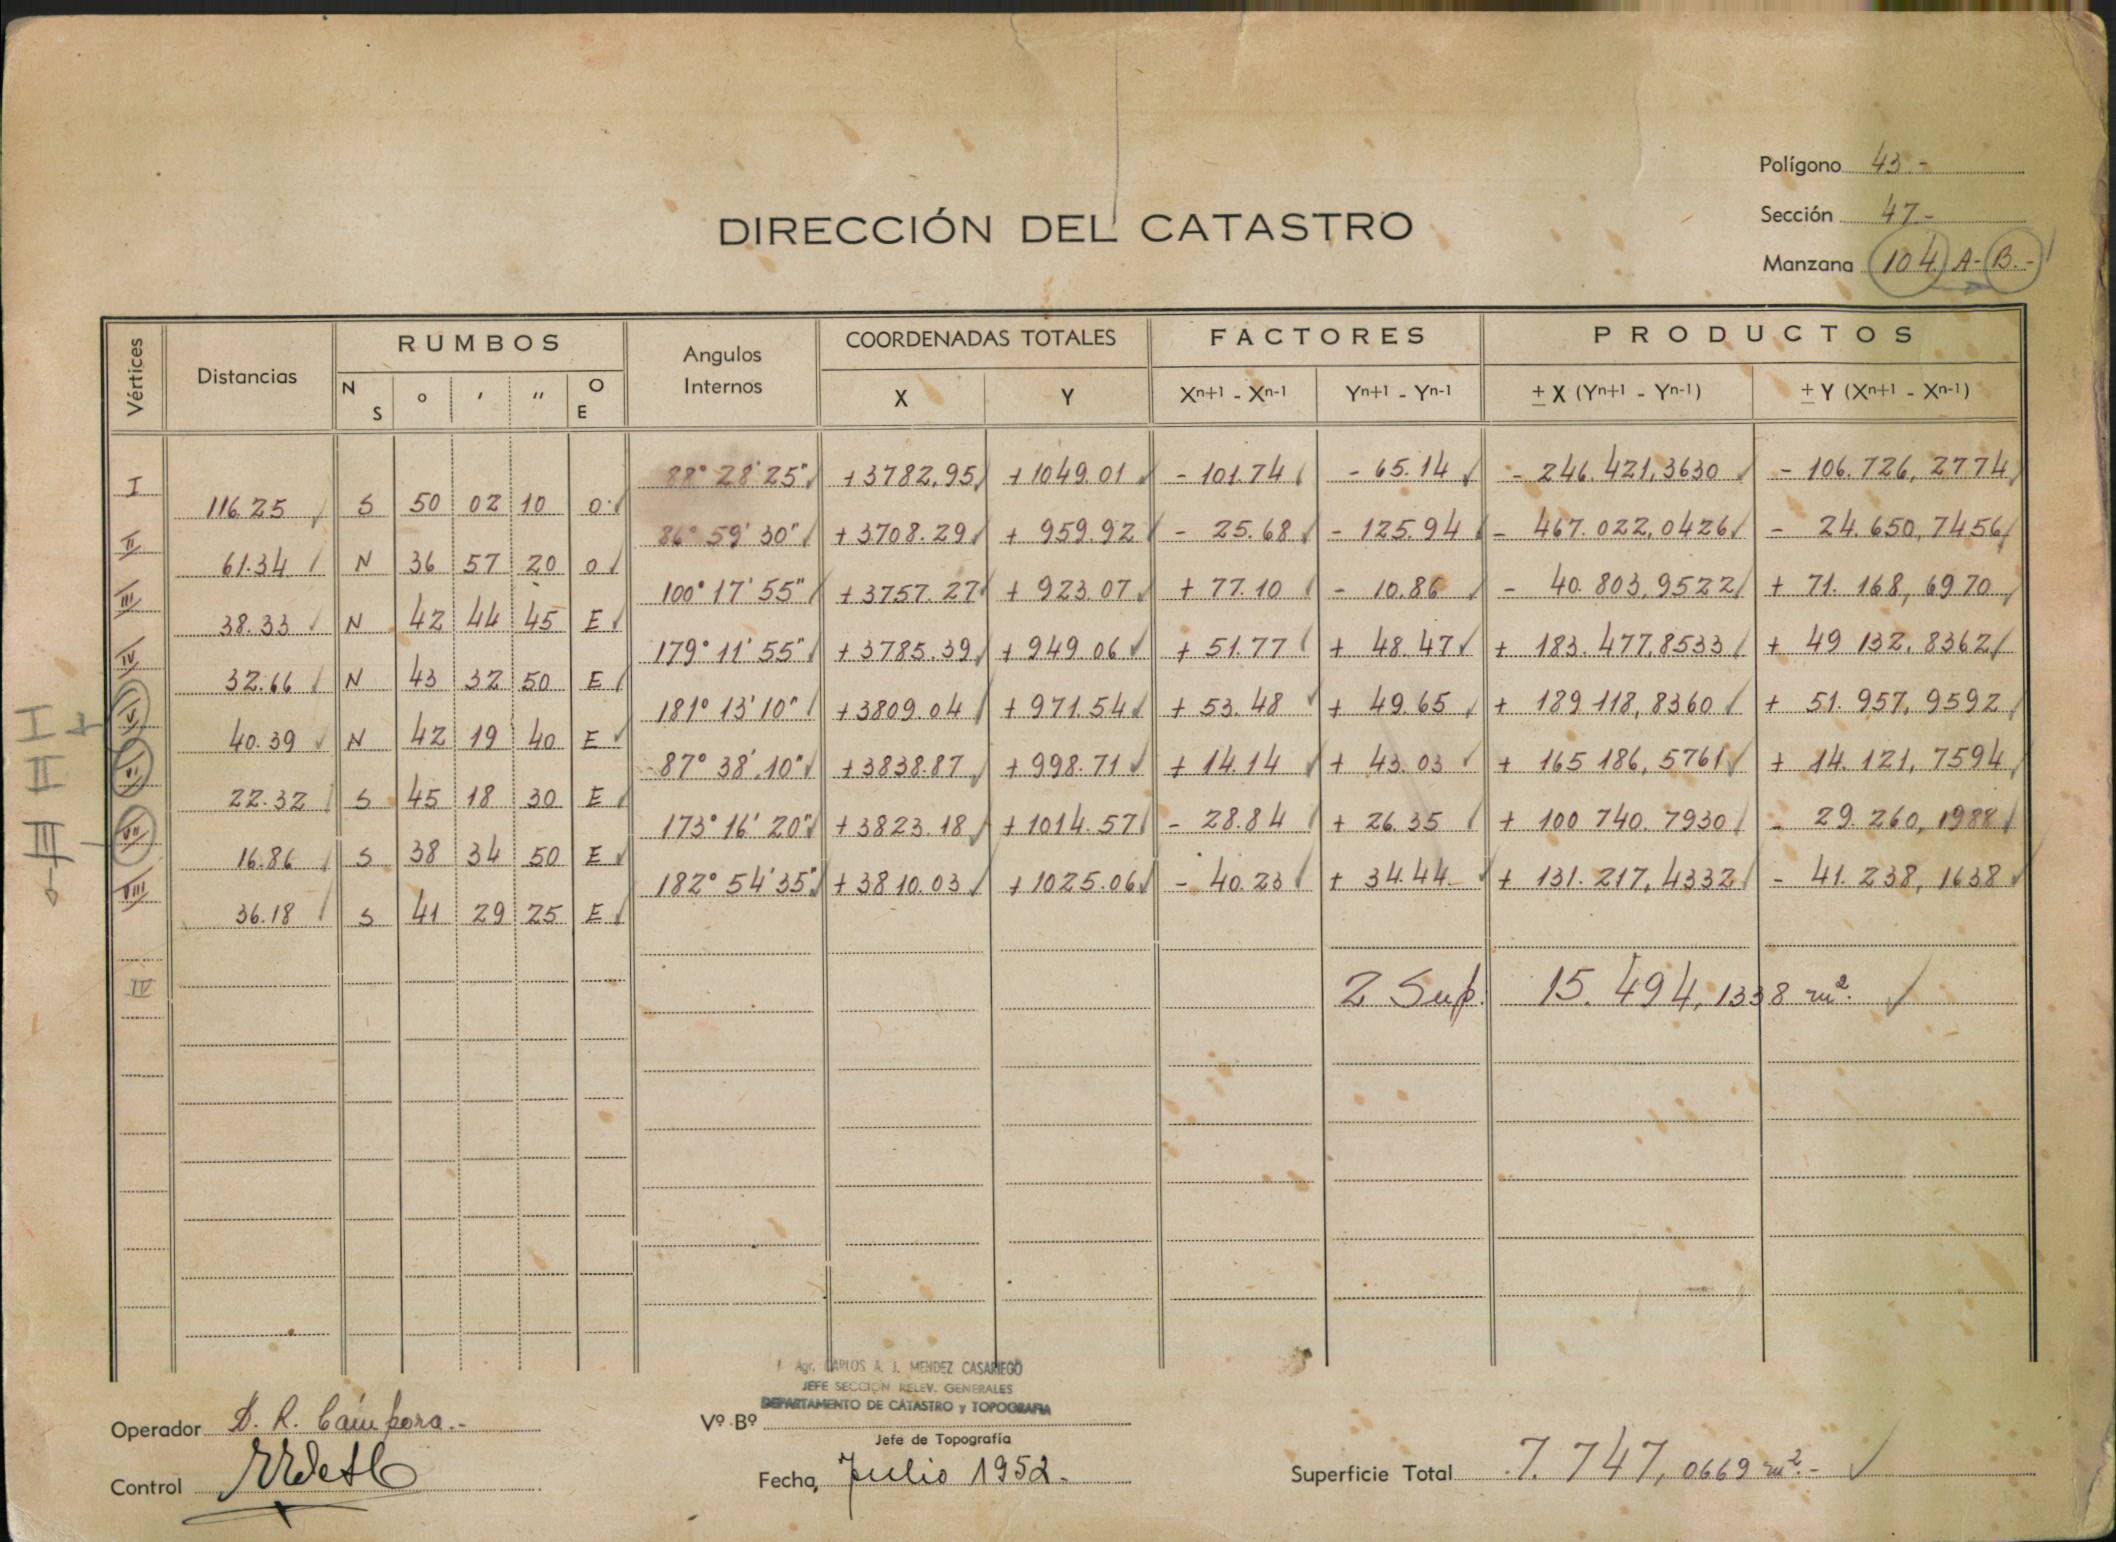 Polígono 43.-
Sección 47-
Manzana 104 A-B.-
DIRECCIÓN DEL CATASTRO
Vértices Distancias RUMBOS Angulos Internos COORDENADAS TOTALES FACTORES PRODUCTOS
N S ° ' " O E X Y Xn+1 - Xn-1 Yn+1 - Yn-1 ± X (Yn+1 - Yn-1) ± Y (Xn+1 - Xn-1)
I 88° 28' 25" +3782,95 +1049.01 - 101.74 - 65.14 - 246.421,3630 - 106.726,2774
116.25 S 50 02 10 O
II 86° 59' 30" +3708.29 + 959.92 - 25.68 - 125.94 - 467.022,0426 - 24.650,7456
61.34 N 36 57 20 O
III 100° 17' 55" +3757.27 + 923.07 + 77.10 - 10.86 - 40.803,9522 + 71.168,6970
38.33 N 42 44 45 E
IV 179° 11' 55" +3785.39 +949.06 + 51.77 + 48.47 + 183.477,8533 + 49 132.8362
32.66 N 43 32 50 E
V 181° 13' 10" +3809.04 +971.54 + 53.48 + 49.65 + 189 118,8360 + 51.957,9592
I
40.39 N 42 19 40 E
VI 87° 38' 10" +3838.87 +998.71 + 14.14 + 43.03 + 165 186,5761 + 14.121,7594
II
22.32 S 45 18 30 E
VII 173° 16' 20" +3823.18 +1014.57 - 28.84 + 26.35 + 100 740.7930 - 29.260,1988
III
16.86 S 38 34 50 E
VIII 182° 54' 35" +3810.03 +1025.06 - 40.23 + 34.44 + 131.217,4332 - 41.238,1638
36.18 S 41 29 25 E
IV 2 Sup. 15.494,1338 m².
Agr. CARLOS A. J. MENDEZ CASARIEGO
JEFE SECCION RELEV. GENERALES
DEPARTAMENTO DE CATASTRO y TOPOGRAFIA
Operador D. R. Cámpora.-
Vº Bº
Jefe de Topografía
Control
Fecha, Julio 1952.-
Superficie Total 7.747,0669 m².-